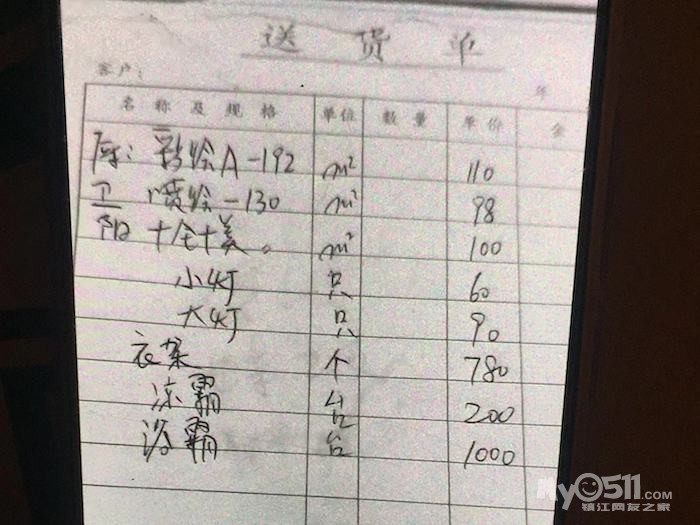 送货单
客户: 年
名称及规格 单位 数量 单价 金
厨: 彩绘A-192 m² 110
卫 喷绘-130 m² 98
阳 十全十美。 m² 100
小灯 只 60
大灯 只 90
衣架 个 780
凉霸 台 200
浴霸 台 1000
My0511.com
镇江网友之家